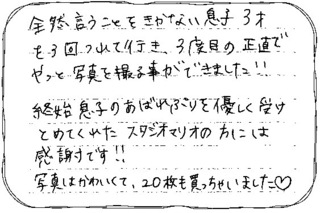 全然言うことをきかない息子3才
を3回つれて行き、3度目の正直で
やっと写真を撮る事ができました!!
終始息子のあばれぶりを優しく受け
とめてくれたスタジオマリオの方には
感謝です!!
写真はかわいくて、20枚も買っちゃいました♡